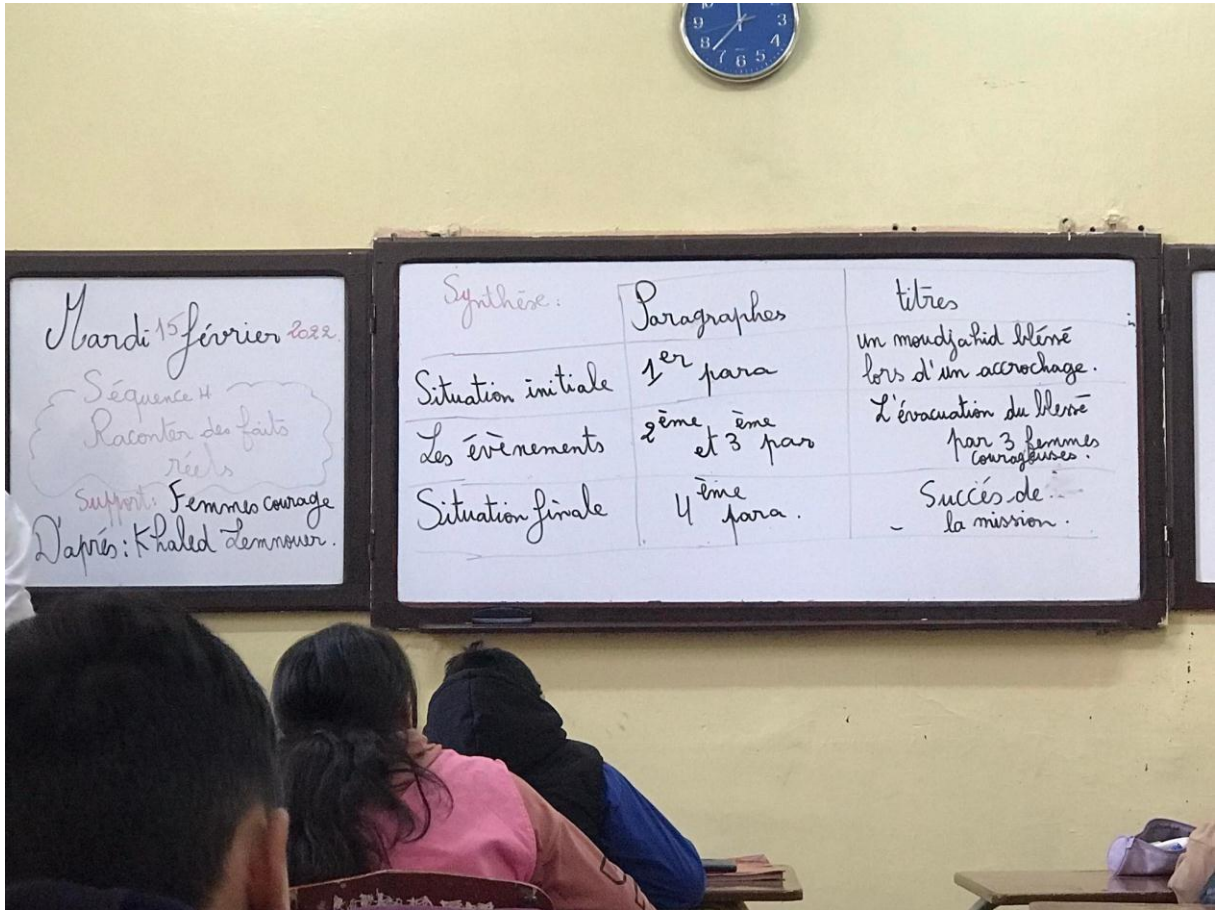 10 2
9 3
8 4
7 6 5
Mardi 15 février 2022.
Séquence 4
Raconter des faits
réels
Support: Femmes courage
D'aprés: Khaled Lemnouer.
Synthèse: Paragraphes titres
Situation initiale 1er para un moudjahid bléssé
lors d'un accrochage.
Les évènements 2ème et 3ème par L'évacuation du blessé
par 3 femmes
courageuses.
Situation finale 4ème para. Succés de
la mission.